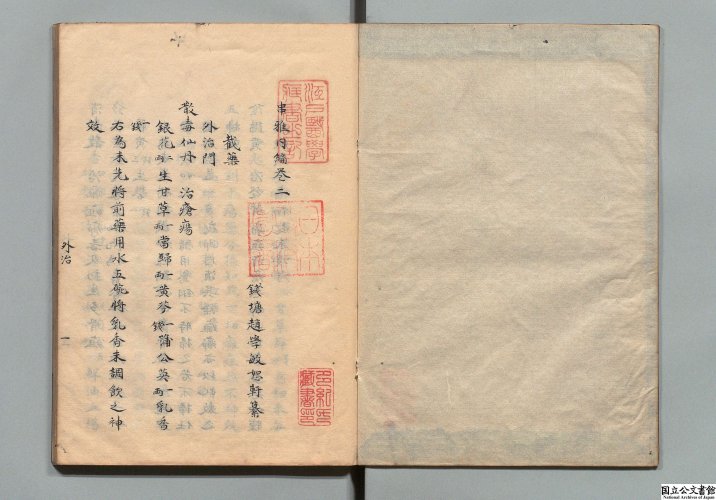 串雅內編卷二
錢塘趙學敏恕軒纂
截藥
外治門
散毒仙丹 治瘡瘍
銀花 生甘草 當歸 黃芩一錢 蒲公英一兩 乳香
一錢
右為末先將前藥用水五碗將乳香末調飲之神
效
外治
一
江戶醫學
藏書之記
多紀氏
藏書印
国立公文書館
National Archives of Japan